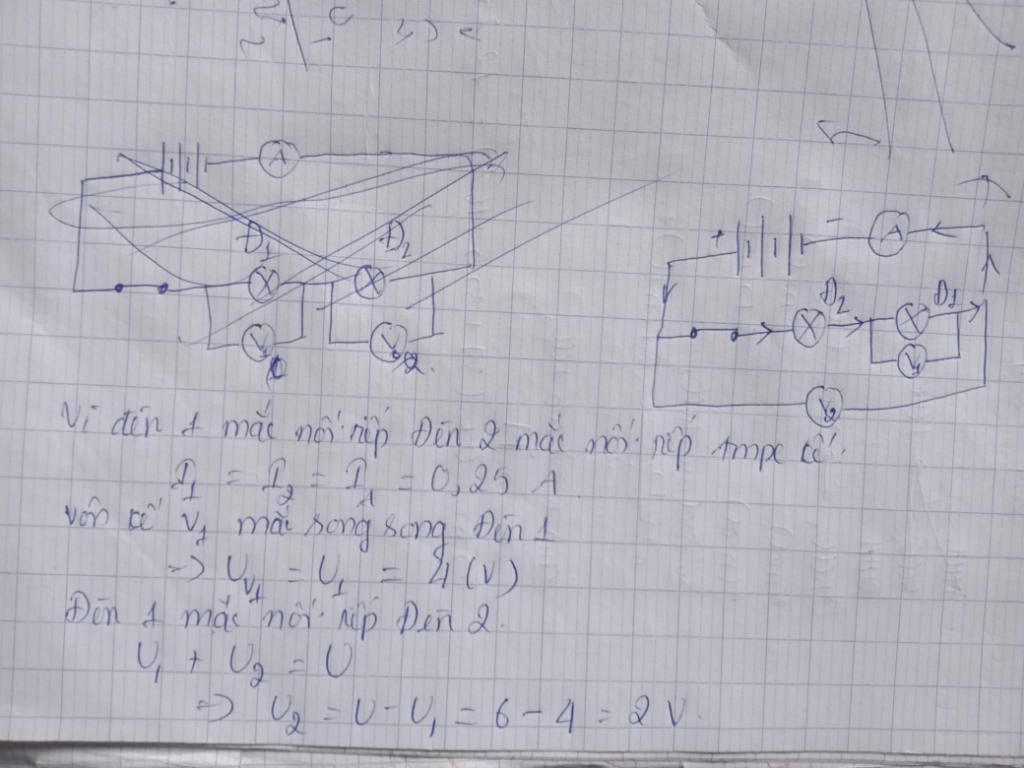 A
Đ1 Đ2
V1 V2
+ - A
Đ2 Đ1
V1
V2
Vì đèn 1 mắc nối tiếp Đèn 2 mắc nối tiếp ampe kế:
I1 = I2 = IA = 0,25 A.
Vôn kế V1 mắc song song Đèn 1
=> UV1 = U1 = 4 (V)
Đèn 1 mắc nối tiếp Đèn 2.
U1 + U2 = U
=> U2 = U - U1 = 6 - 4 = 2 V.